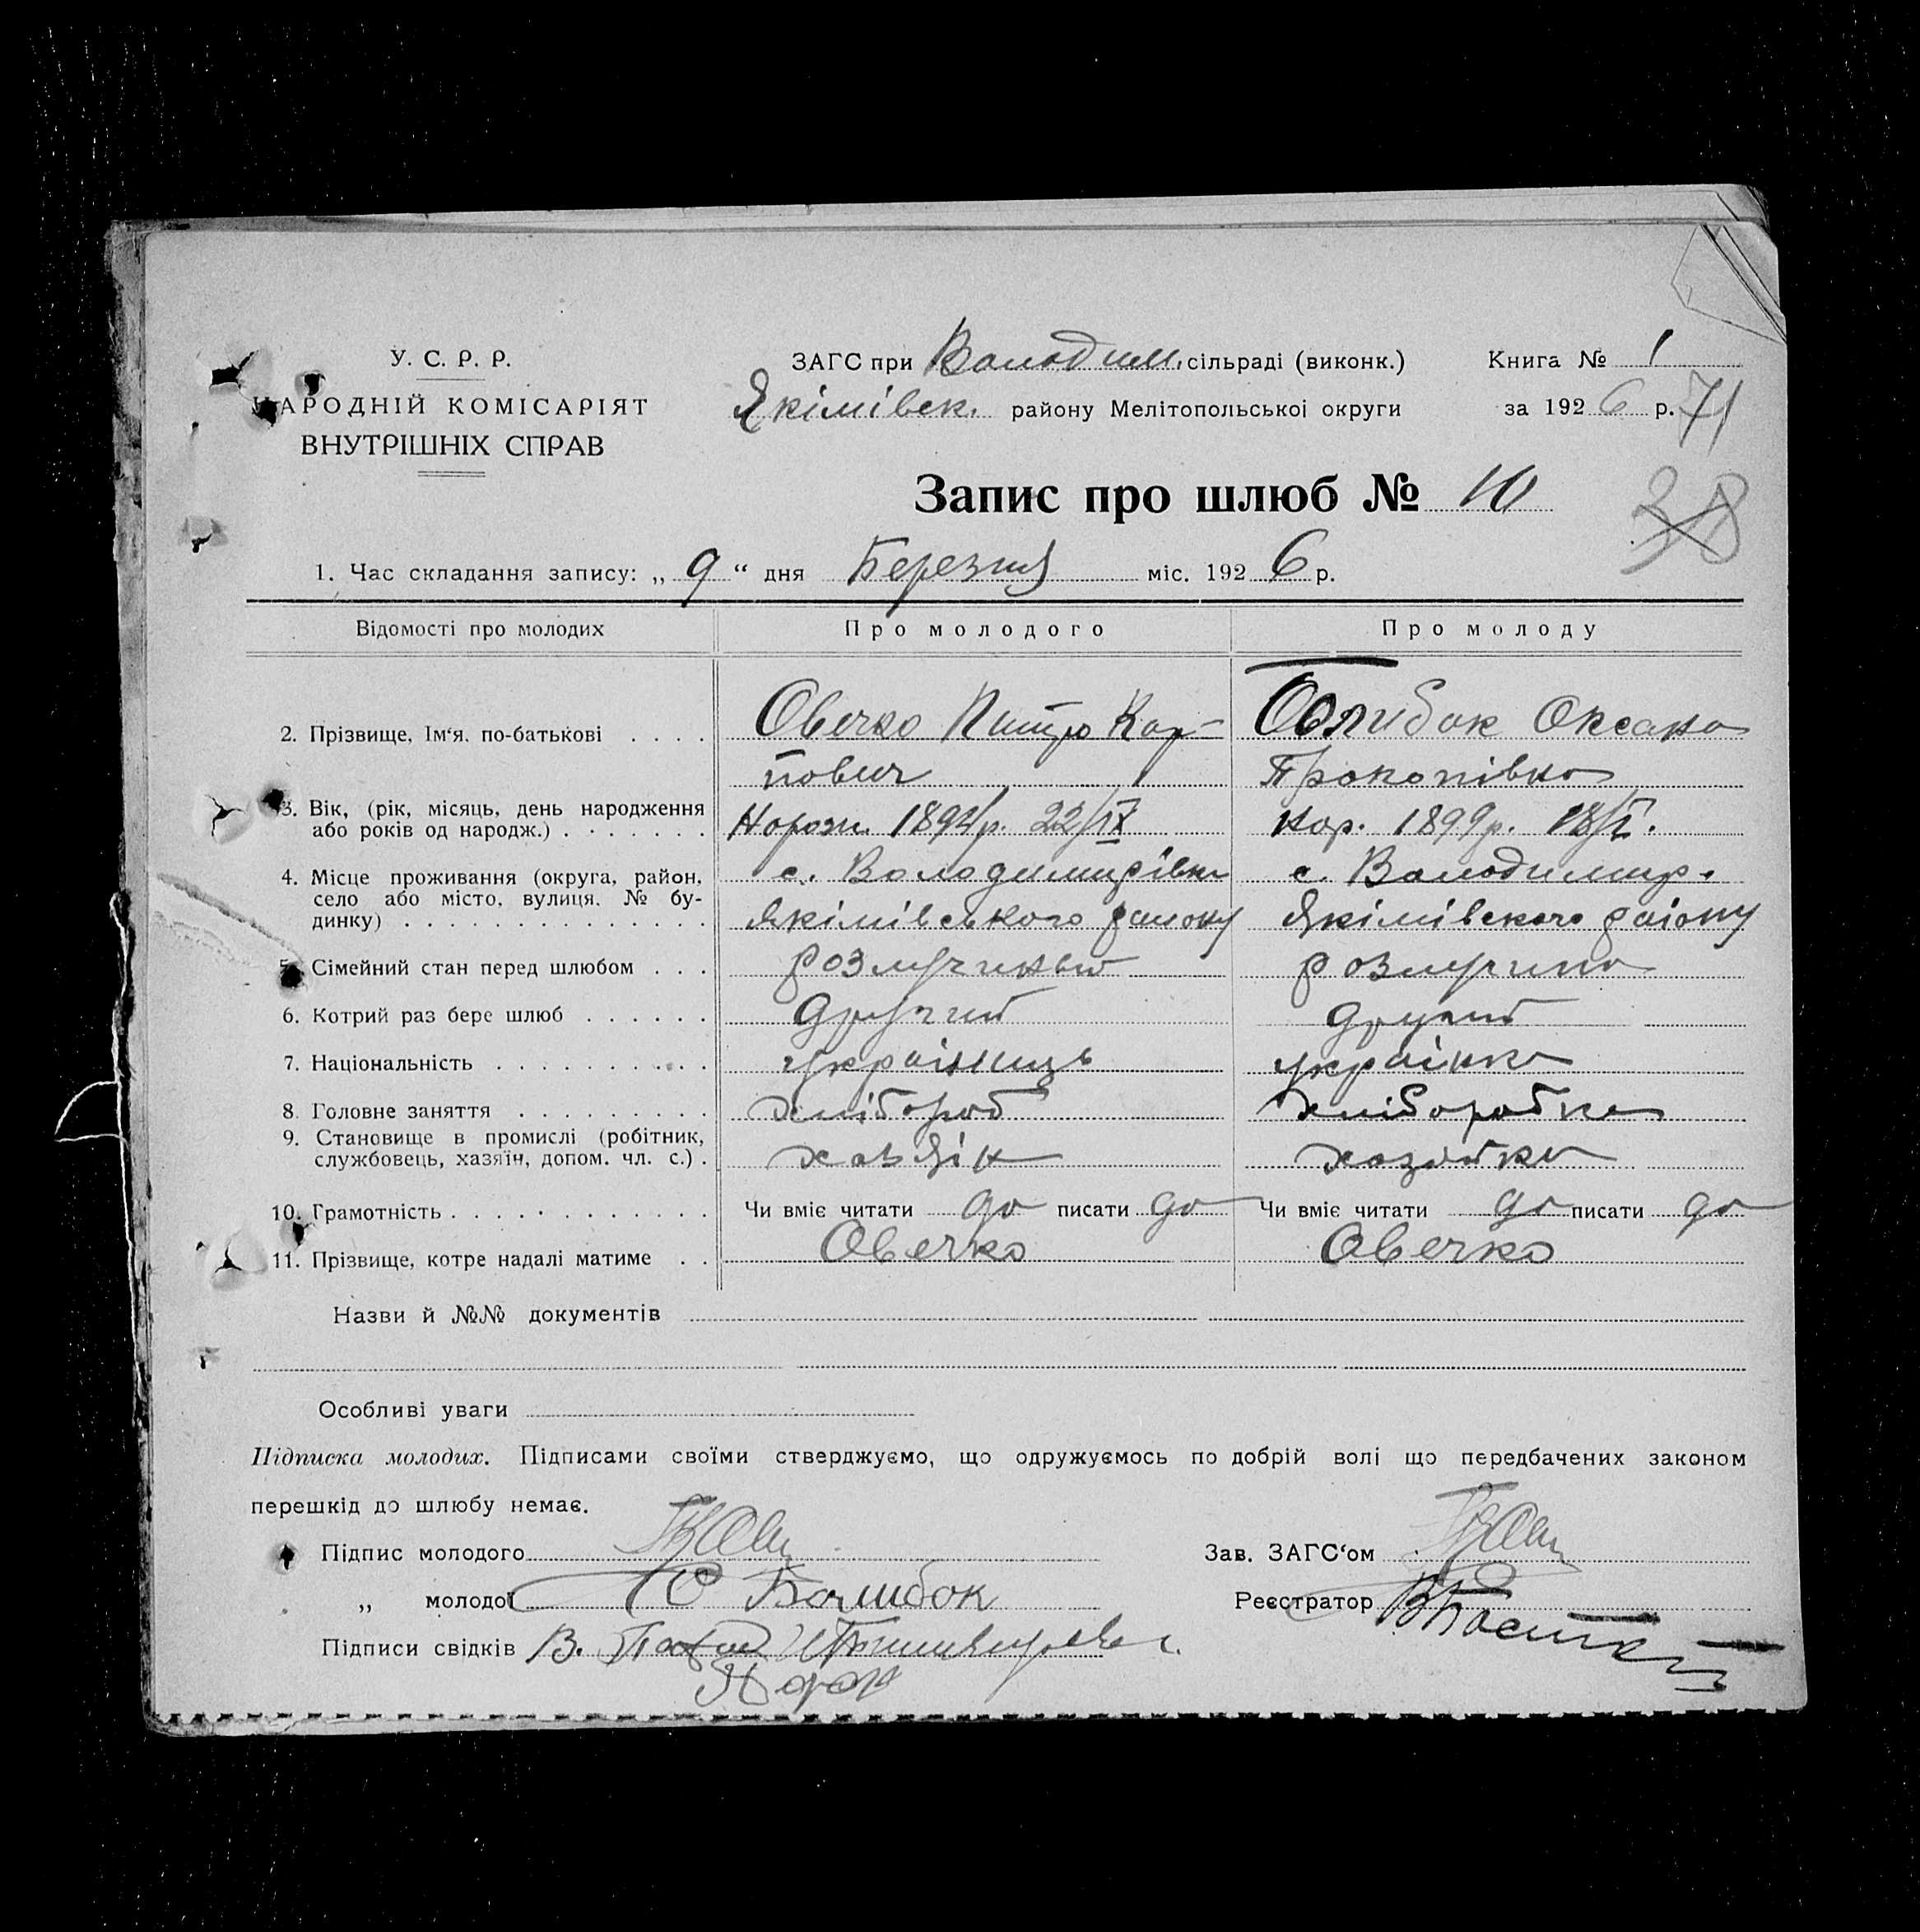 У. С. Р. Р.
НАРОДНІЙ КОМІСАРІЯТ
ВНУТРІШНІХ СПРАВ
ЗАГС при Володим. сільраді (виконк.)
Якімівськ. району Мелітопольської округи
Книга № 1
за 1926 р. 71
Запис про шлюб № 10
38
1. Час складання запису: „ 9 “ дня Березня міс. 1926 р.
Відомості про молодих Про молодого Про молоду
2. Прізвище, Ім‘я, по-батькові . . . . Овечко Питро Кар- Оксана
пович Прокопівна
3. Вік, (рік, місяць, день народження
або років од народж.) . . . . . . . Нарож. 22/IX нар. 1899р.
4. Місце проживання (округа, район, с. Володимирівка с. Володимир.
село або місто, вулиця, № бу-
динку) . . . . . . . . . . . . . . Якімівського району Якімівского раіону
5. Сімейний стан перед шлюбом . . . розлучиный розлучина
6. Котрий раз бере шлюб . . . . . . Другий Другий
7. Національність . . . . . . . . . . украінець украінка
8. Головне заняття . . . . . . . . . хлібороб хліборобка
9. Становище в промислі (робітник,
службовець, хазяїн, допом. чл. с.) . хазяін хазяйка
10. Грамотність . . . . . . . . . . . . Чи вміє читати да писати да Чи вміє читати да писати да
11. Прізвище, котре надалі матиме . . Овечко Овечко
Назви й №№ документів
Особливі уваги
Підписка молодих. Підписами своїми стверджуємо, що одружуємось по добрій волі що передбачених законом
перешкід до шлюбу немає.
Підпис молодого Зав. ЗАГС‘ом
„ молодої Реєстратор
Підписи свідків В.